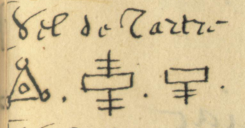 Sel de Tartre